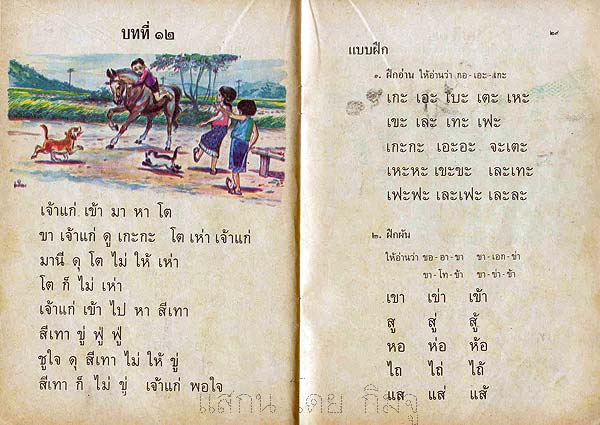 บทที่ ๑๒
เจ้าแก่ เข้า มา หา โต
ขา เจ้าแก่ ดู เกะกะ โต เห่า เจ้าแก่
มานี ดุ โต ไม่ ให้ เห่า
โต ก็ ไม่ เห่า
เจ้าแก่ เข้า ไป หา สีเทา
สีเทา ขู่ ฟู่ ฟู่
ชูใจ ดุ สีเทา ไม่ ให้ ขู่
สีเทา ก็ ไม่ ขู่ เจ้าแก่ พอใจ
๒๙
แบบฝึก
๑. ฝึกอ่าน ให้อ่านว่า กอ - เอะ - เกะ
เกะ เอะ โบะ เตะ เหะ
เขะ เละ เทะ เฟะ
เกะกะ เอะอะ จะเตะ
เหะหะ เขะขะ เละเทะ
เฟะฟะ เละเฟะ เละละ
๒. ฝึกผัน
ให้อ่านว่า ขอ - อา - ขา ขา - เอก - ข่า
ขา - โท - ข้า ขา - ข่า - ข้า
เขา เข่า เข้า
สู สู่ สู้
หอ ห่อ ห้อ
ไถ ไถ่ ไถ้
แส แส่ แส้
แสกน โดย กิมจู